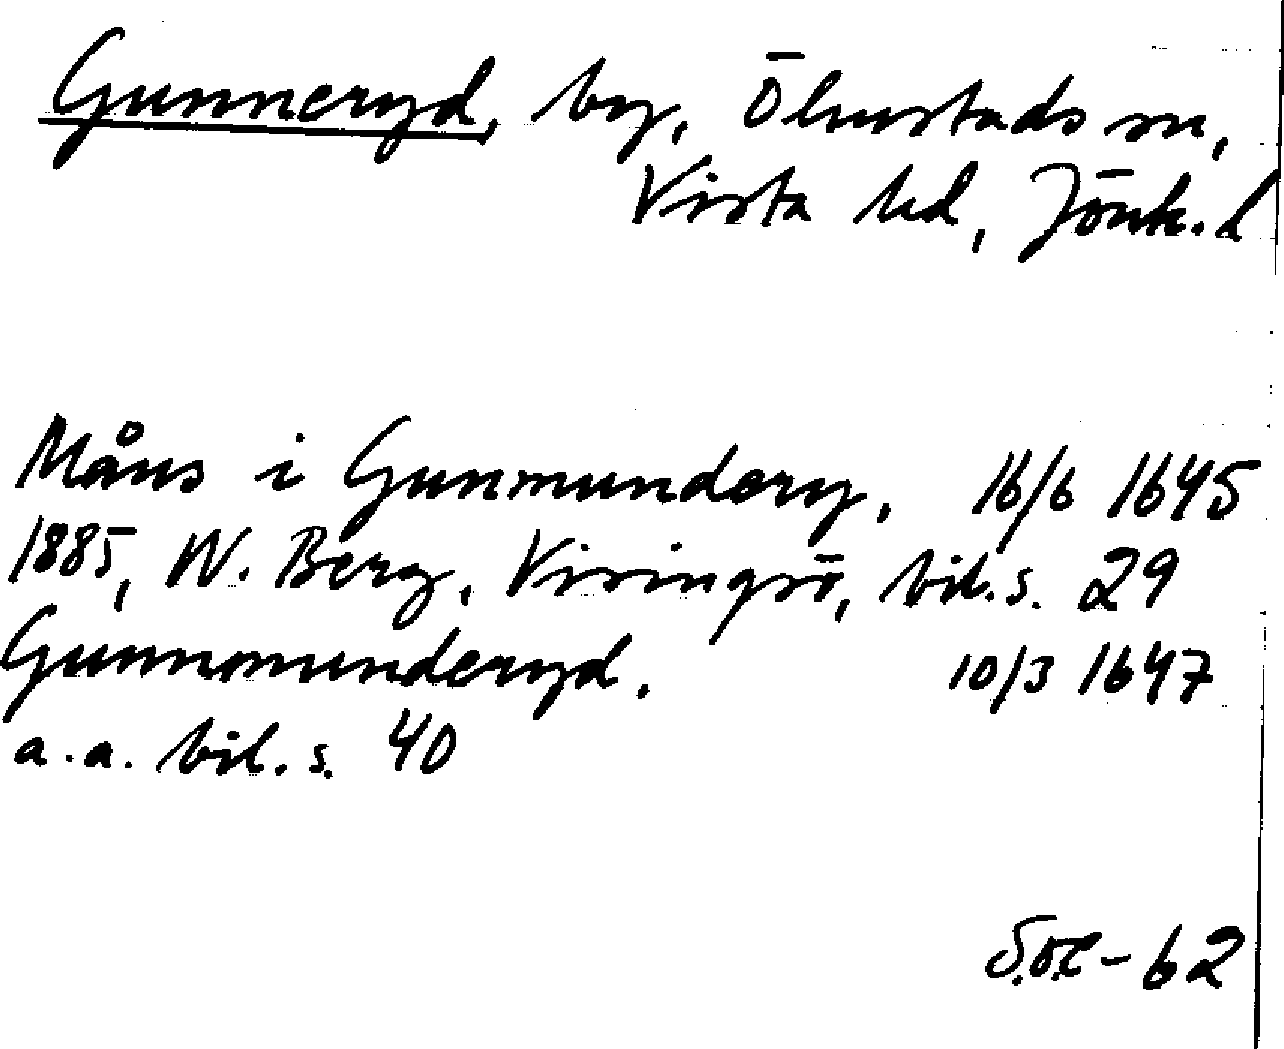 Gunneryd, by, Ölmstads sn,
Vista hd, Jönk. l
Måns i Gunmundery, 16/6 1645
1885, W. Berg, Visingsö, bil. s. 29
Gunnmunderyd. 10/3 1647
a.a. bil. s. 40
-62